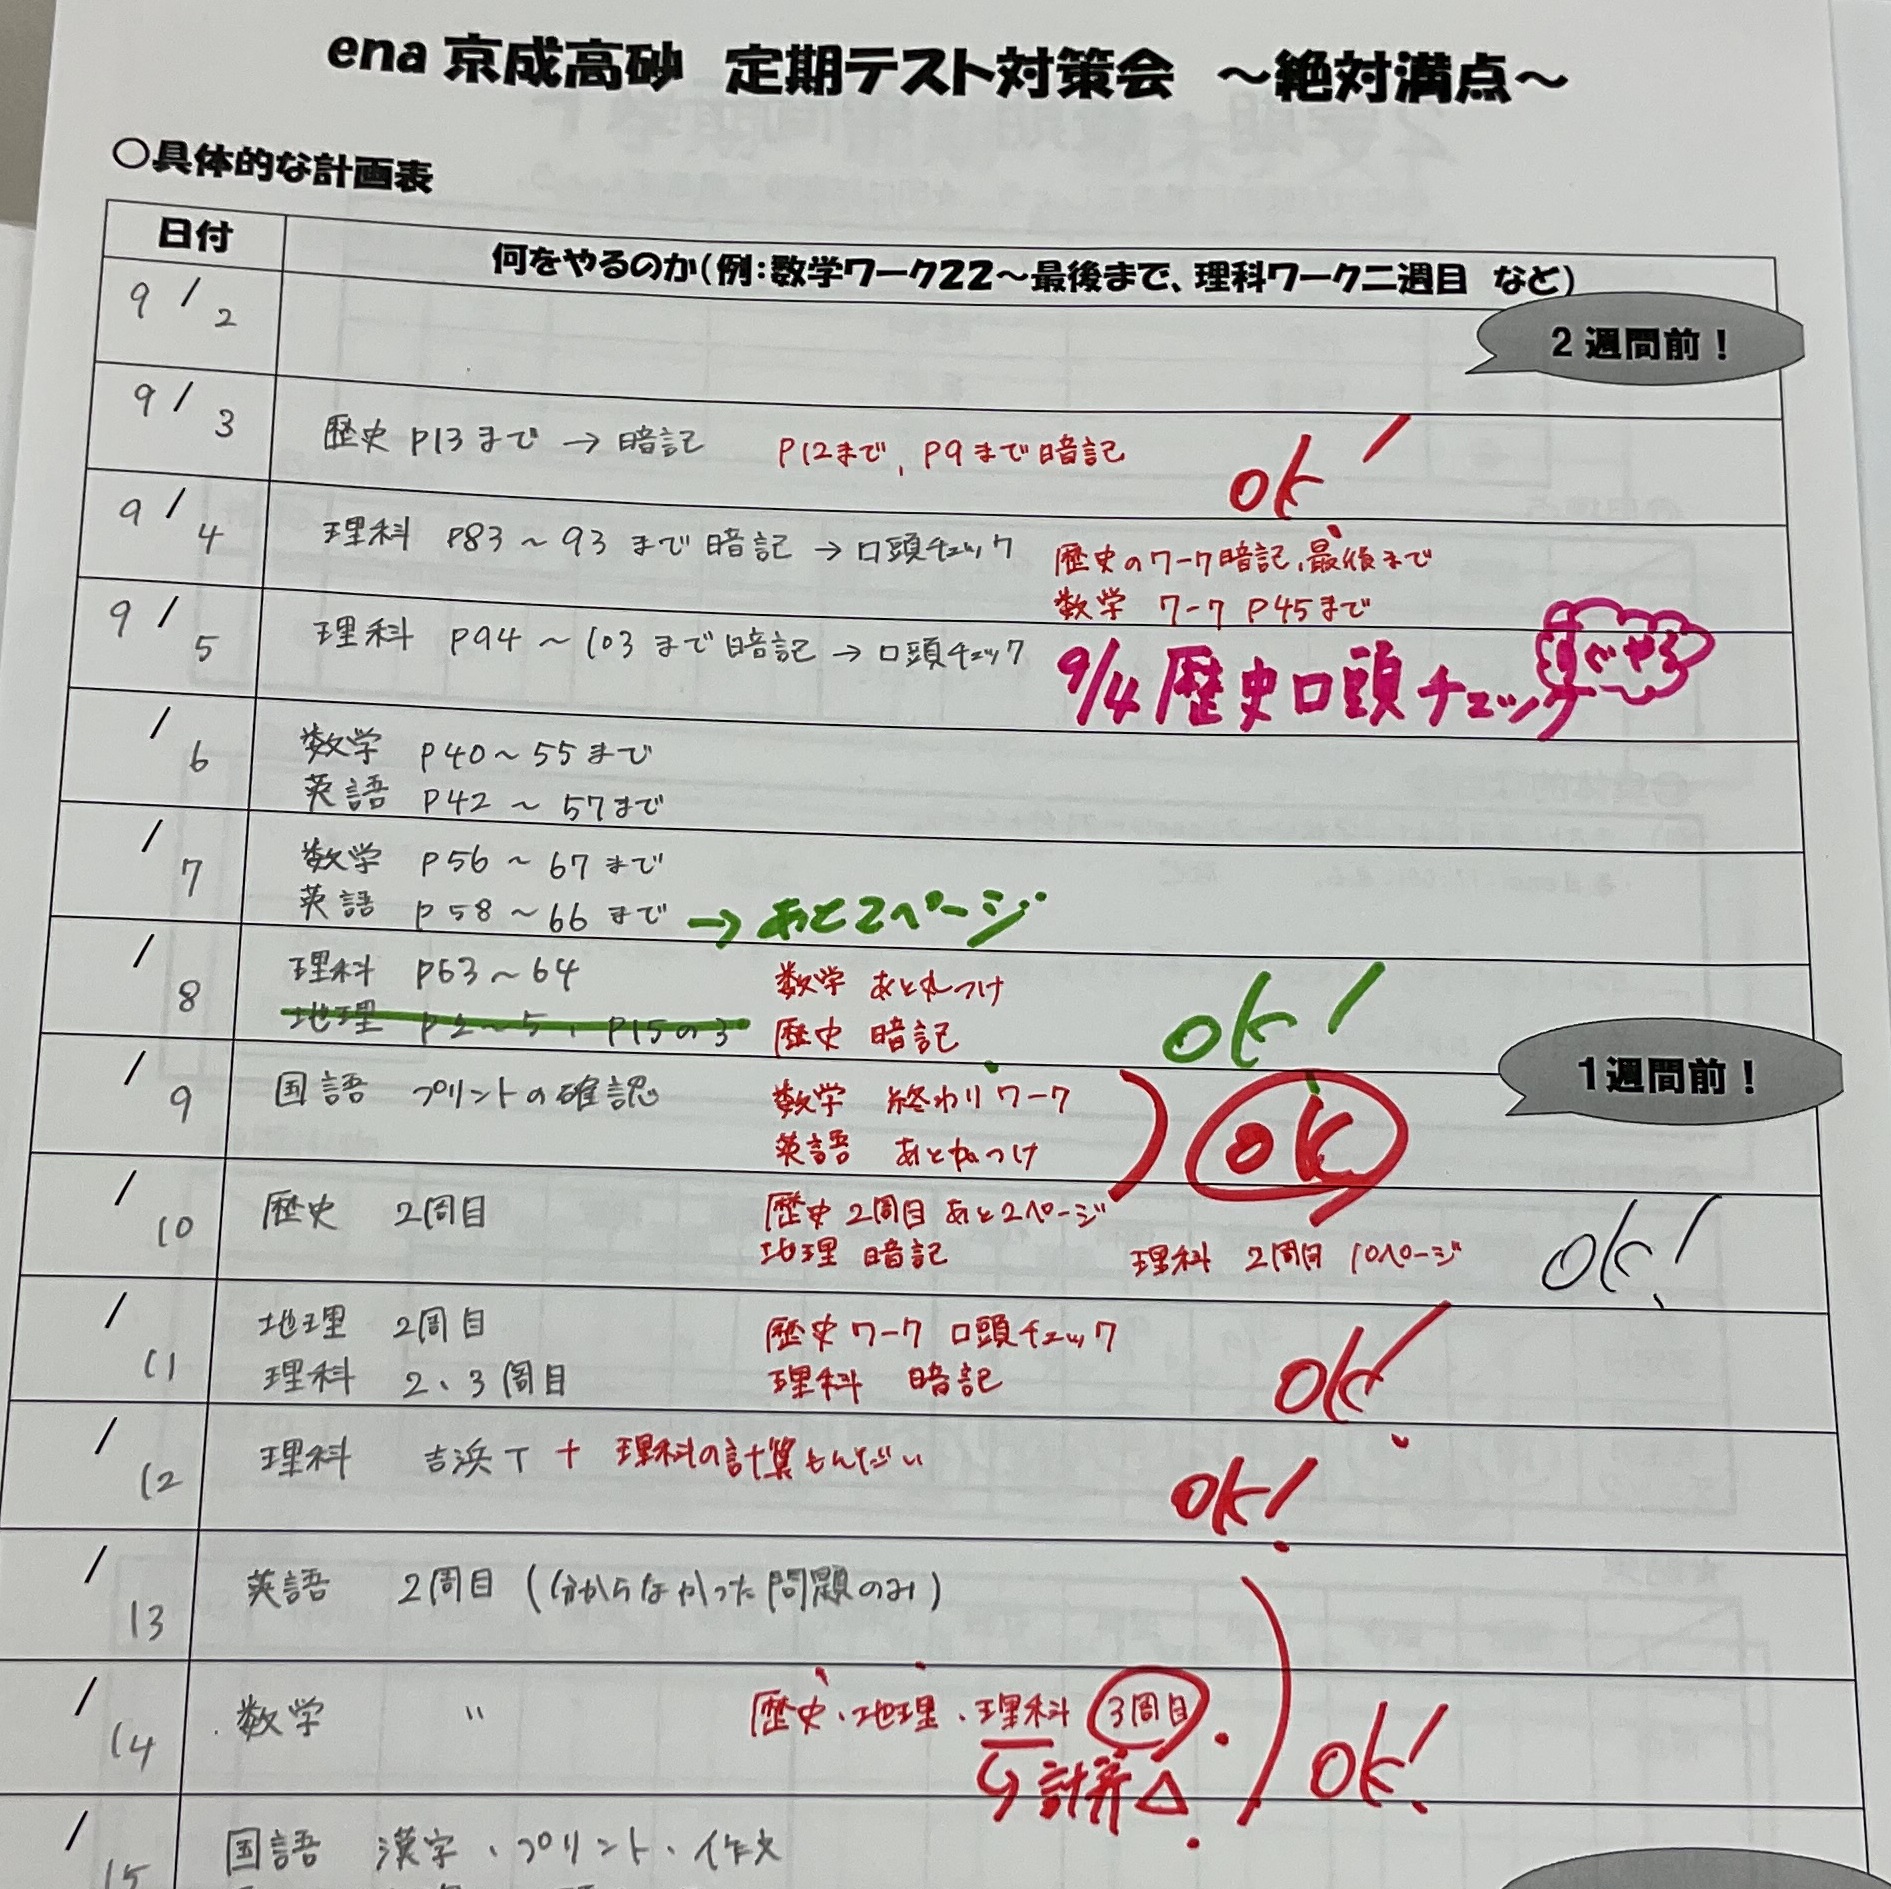 ena 京成高砂 定期テスト対策会 ～絶対満点～
○具体的な計画表
日付 何をやるのか(例:数学ワーク22～最後まで、理科ワーク二週目 など)
9/2
2週間前!
9/3 歴史 P13まで → 暗記 P12まで, P9まで暗記 OK!
9/4 理科 P83～93まで暗記→口頭チェック 歴史のワーク暗記、最後まで
数学 ワーク P45まで
9/5 理科 P94～103まで暗記→口頭チェック 9/4 歴史口頭チェック すぐやる
/6 数学 P40～55まで
英語 P42～57まで
/7 数学 P56～67まで
英語 P58～66まで → あと2ページ
/8 理科 P63～64 数学 あと丸つけ OK!
地理 P2～5, P15の3 歴史 暗記
1週間前!
/9 国語 プリントの確認 数学 終わり ワーク OK
英語 あと丸つけ
/10 歴史 2周目 歴史 2周目 あと2ページ
地理 暗記 理科 2周目 10ページ OK!
/11 地理 2周目 歴史ワーク 口頭チェック
理科 2、3周目 理科 暗記 OK!
/12 理科 吉浜T + 理科の計算もんだい OK!
/13 英語 2周目(分からなかった問題のみ)
/14 数学 〃 歴史・地理・理科 3周目 OK!
計算△
/15 国語 漢字・プリント・作文